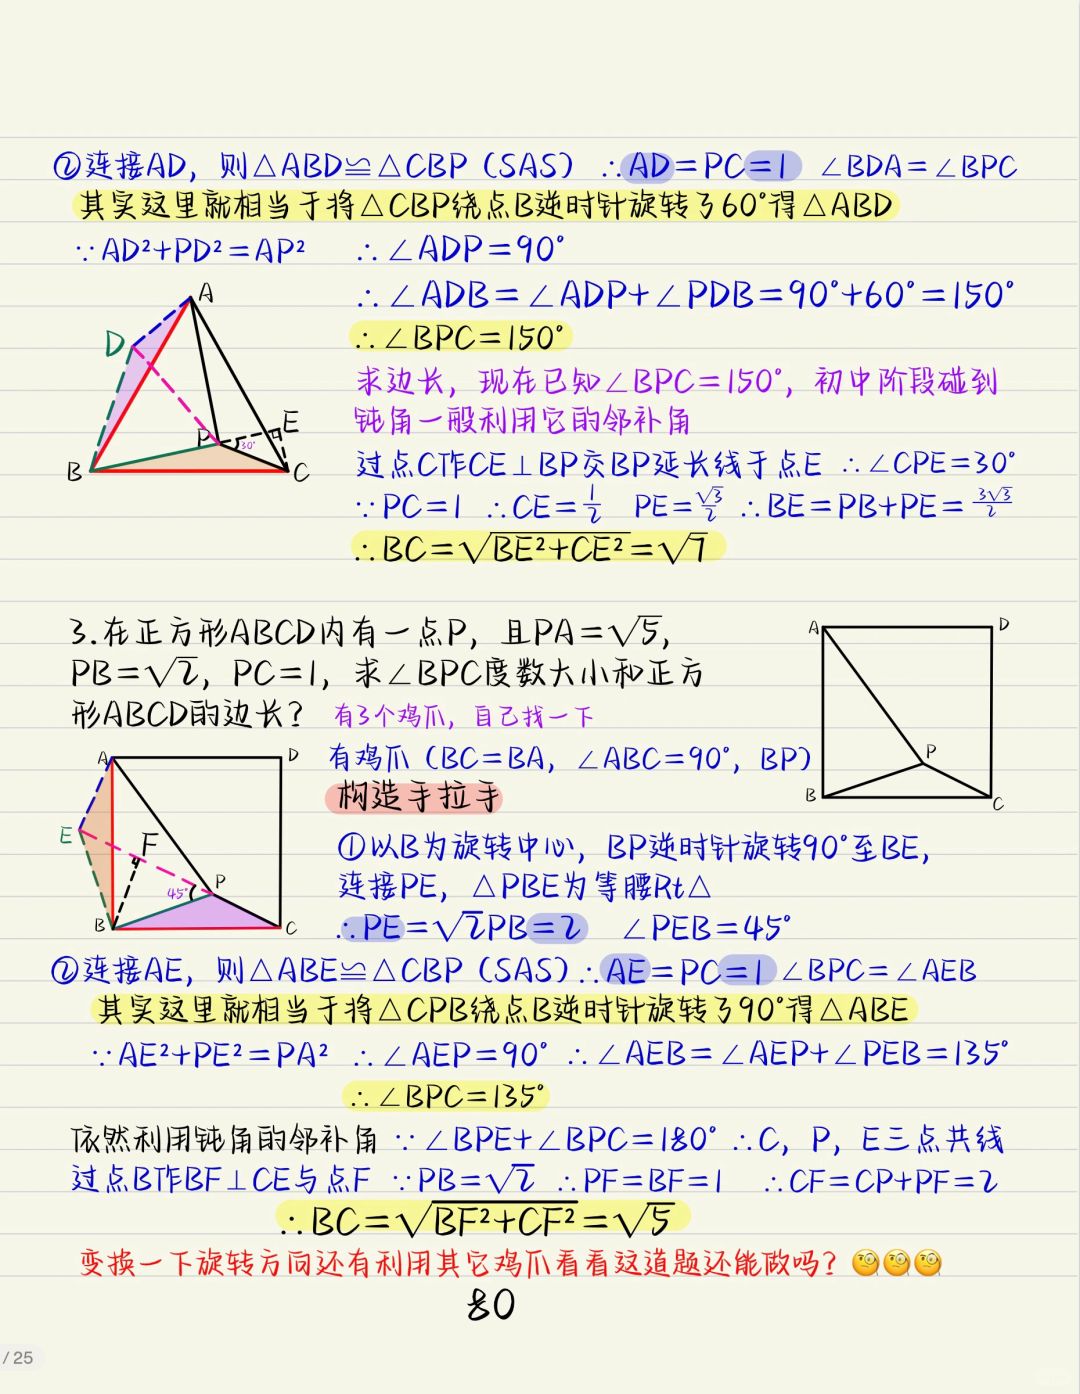 ②连接AD，则△ABD≌△CBP（SAS） ∴AD=PC=1 ∠BDA=∠BPC
其实这里就相当于将△CBP绕点B逆时针旋转了60°得△ABD
∵AD²+PD²=AP² ∴∠ADP=90°
∴∠ADB=∠ADP+∠PDB=90°+60°=150°
∴∠BPC=150°
求边长，现在已知∠BPC=150°，初中阶段碰到
钝角一般利用它的邻补角
过点C作CE⊥BP交BP延长线于点E ∴∠CPE=30°
∵PC=1 ∴CE=1/2 PE=√3/2 ∴BE=PB+PE=3√3/2
∴BC=√(BE²+CE²)=√7
A
D
P
30°
E
B
C
3.在正方形ABCD内有一点P，且PA=√5，
PB=√2，PC=1，求∠BPC度数大小和正方
形ABCD的边长？ 有3个鸡爪，自己找一下
A
D
P
B
C
有鸡爪（BC=BA，∠ABC=90°，BP）
构造手拉手
①以B为旋转中心，BP逆时针旋转90°至BE，
连接PE，△PBE为等腰Rt△
∴PE=√2PB=2 ∠PEB=45°
A
D
E
F
45°
P
B
C
②连接AE，则△ABE≌△CBP（SAS）∴AE=PC=1 ∠BPC=∠AEB
其实这里就相当于将△CPB绕点B逆时针旋转了90°得△ABE
∵AE²+PE²=PA² ∴∠AEP=90° ∴∠AEB=∠AEP+∠PEB=135°
∴∠BPC=135°
依然利用钝角的邻补角 ∵∠BPE+∠BPC=180° ∴C，P，E三点共线
过点B作BF⊥CE与点F ∵PB=√2 ∴PF=BF=1 ∴CF=CP+PF=2
∴BC=√(BF²+CF²)=√5
变换一下旋转方向还有利用其它鸡爪看看这道题还能做吗？🧐🧐🧐
80
/ 25